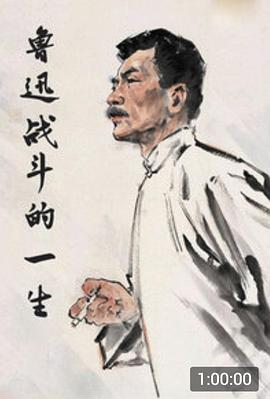 鲁迅战斗的一生
1:00:00